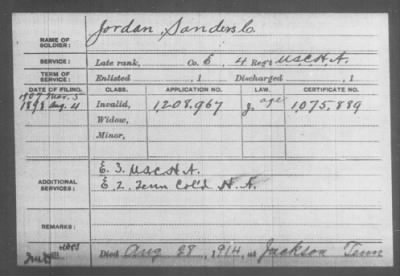 NAME OF SOLDIER: Jordan, Sanders C.
SERVICE: Late rank, Co. 6, 4 Reg't U.S.C.H.A.
TERM OF SERVICE: Enlisted , 1 Discharged , 1
DATE OF FILING. CLASS. APPLICATION NO. LAW. CERTIFICATE NO.
1907 Mar. 5 age
1898 Aug. 4 Invalid, 1,208,967 J. 1,075,889
Widow,
Minor,
ADDITIONAL SERVICES: E. 3. U.S.C.H.A.
E, 2, Tenn Col'd H. A.
REMARKS:
Died Aug 28, 1914, at Jackson Tenn